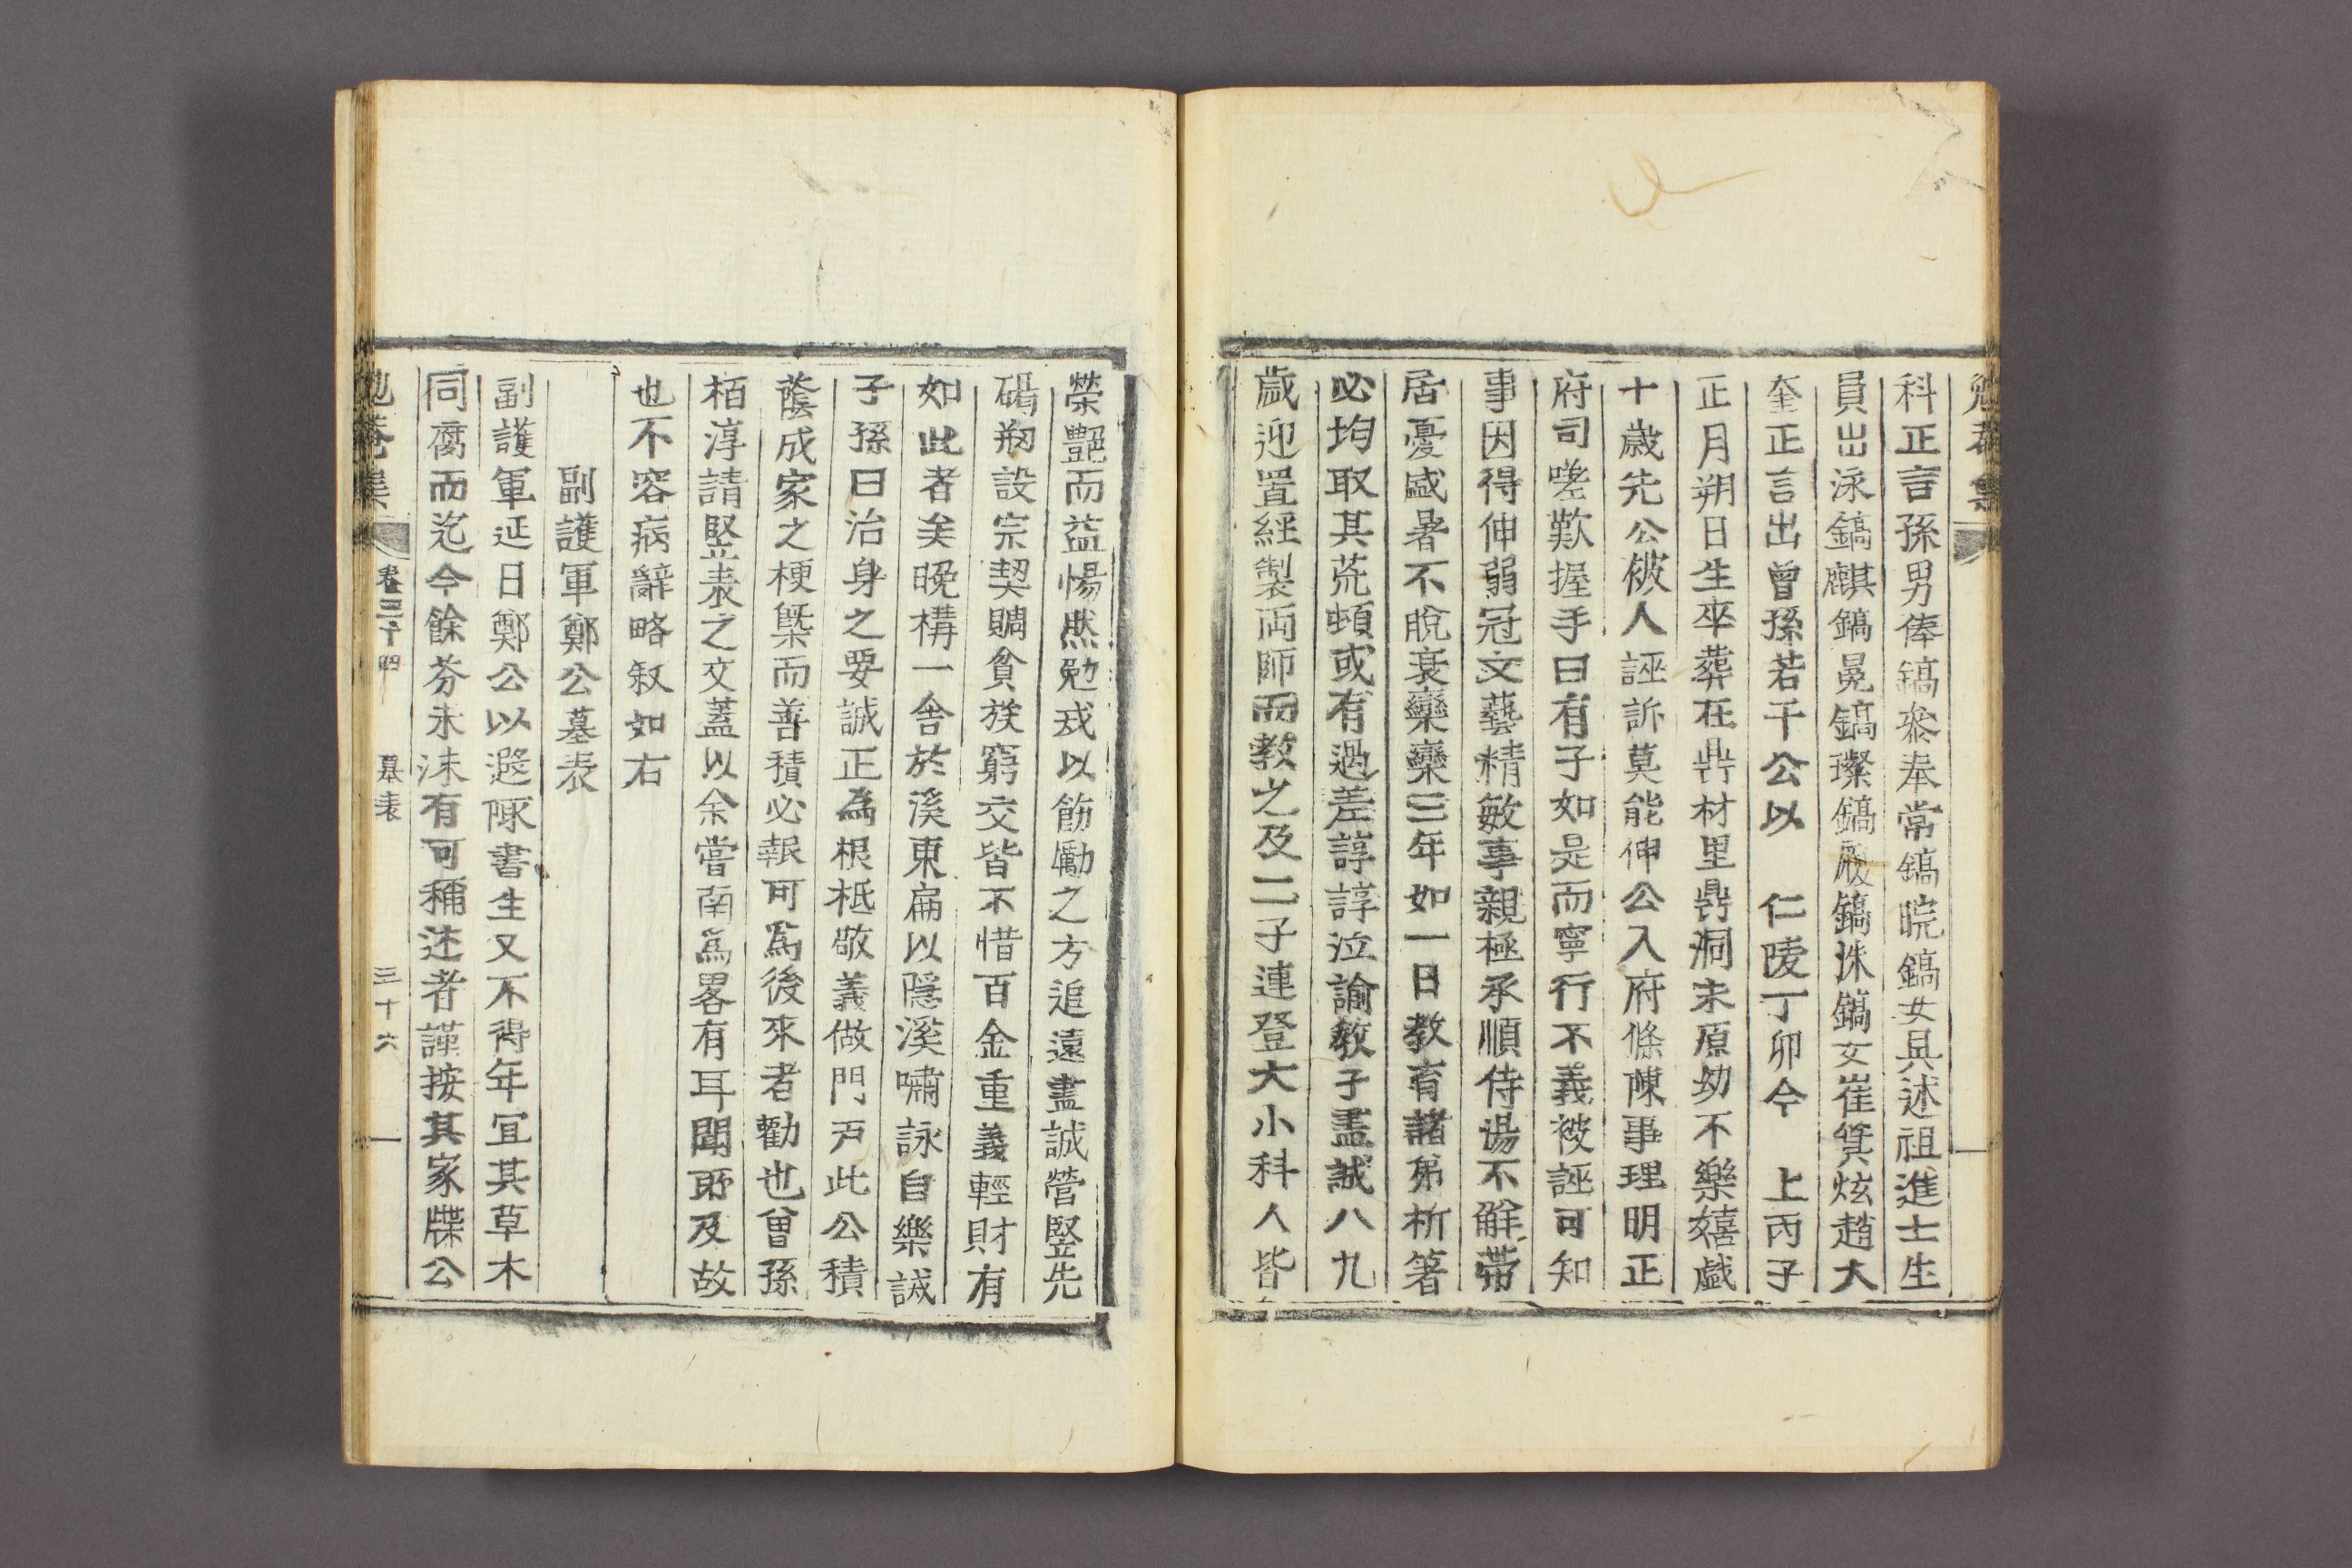 科正言孫男俸鎬叅奉常鎬晥鎬女具述祖進士生
員出泳鎬麒鎬晃鎬璨鎬殷鎬洙鎬女崔箕炫趙大
奎正言出曾孫若干公以 仁陵丁卯今 上丙子
正月朔日生卒葬在鼎材里鼎洞未原幼不樂嬉戯
十歲先公被人誣訴莫能伸公入府條陳事理明正
府司嗟歎握手曰有子如是而寧行不義被誣可知
事因得伸弱冠文藝精敏事親極承順侍湯不觧帶
居憂盛暑不脫衰欒欒三年如一日教育諸弟析箸
必均取其荒頓或有過差諄諄泣諭教子盡誠八九
歲迎置經製両師而教之及二子連登大小科人皆
榮艶而益惕然勉戎以飭勵之方追遠盡誠營竪先
碣刱設宗契賙貧族窮交皆不惜百金重義輕財有
如此者矣晚構一舍於溪東扁以隱溪嘯詠自樂誡
子孫曰治身之要誠正為根柢敬義做門戶此公積
蔭成家之梗槩而善積必報可爲後來者勸也曾孫
栢淳請竪表之文蓋以余嘗南爲畧有耳聞所及故
也不容病辭略叙如右
副護軍鄭公墓表
副護軍延日鄭公以遐陬書生又不得年宜其草木
同腐而迄今餘芬未沫有可稱述者謹按其家牒公
卷三十四 墓表 三十六